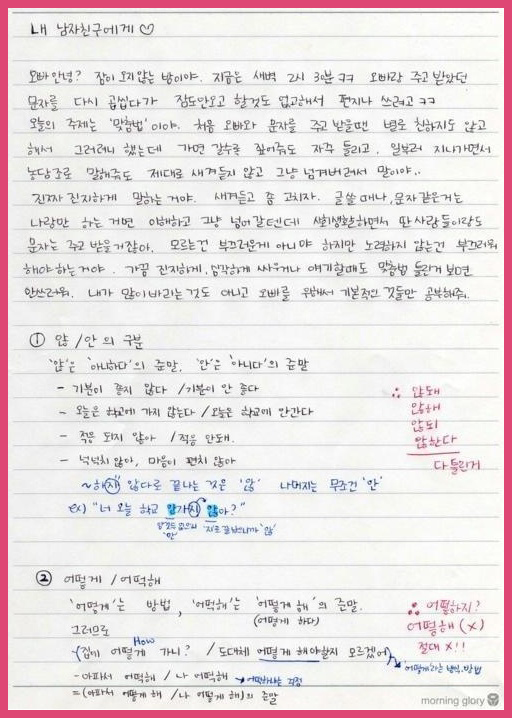 내 남자친구에게 ♡
오빠 안녕? 잠이 오지 않는 밤이야. 지금은 새벽 2시 30분 ㅋㅋ 오빠랑 주고 받았던
문자를 다시 곱씹다가 잠도안오고 할것도 없고해서 편지나 쓰려고 ㅋㅋ
오늘의 주제는 '맞춤법' 이야. 처음 오빠와 문자를 주고 받을땐 별로 친하지도 않고
해서 그러려니 했는데 가면 갈수록 짚어줘도 자주 틀리고, 일부러 지나가면서
농담조로 말해줘도 제대로 새겨듣지 않고 그냥 넘겨버려서 말이야..
진짜 진지하게 말하는거야. 새겨듣고 좀 고치자. 글 쓸 때나, 문자 같은거는
나랑만 하는 거면 이해하고 그냥 넘어 갈텐데 사회생활하면서 딴 사람들이랑도
문자는 주고 받을거잖아. 모르는건 부끄러운게 아니야 하지만 노력하지 않는건 부끄러워
해야 하는거야. 가끔 진지하게, 심각하게 싸우거나 얘기할때도 맞춤법 틀린거 보면
안쓰러워. 내가 많이 바라는 것도 아니고 오빠를 위해서 기본적인 것들만 공부해줘.
① 않 / 안 의 구분
'않'은 '아니하다'의 준말, '안'은 '아니다'의 준말
- 기분이 좋지 않다 / 기분이 안 좋다
- 오늘은 학교에 가지 않는다 / 오늘은 학교에 안간다
- 적응 되지 않아 / 적응 안돼.
- 넉넉치 않아, 마음이 편치 않아
∴ 않돼
않해
않되
않한다
다 틀린거
~하지 않다로 끝나는 것은 '않' 나머지는 무조건 '안'
ex) "너 오늘 학교 안가지 않아?"
'안' '지'로 끝났으니까 '않'
② 어떻게 / 어떡해
'어떻게'는 방법, '어떡해'는 '어떻게 해'의 준말.
(어떻게 하다)
그러므로
How
- 집에 어떻게 가니? / 도대체 어떻게 해야할지 모르겠어
어떻게라는 방식, 방법
- 아파서 어떡해 / 나 어떡해
= (아파서 어떻게 해 / 나 어떻게 해)의 준말
∴ 어떻하지?
어떻해 (x)
절대 x!!
morning glory